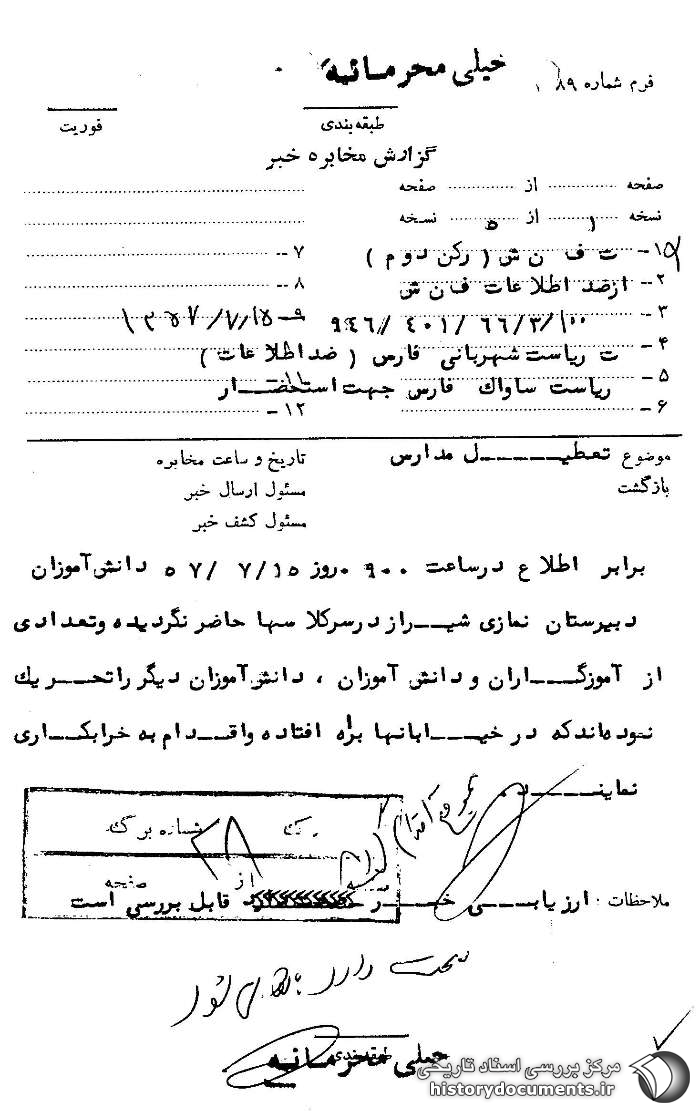 خیلی محرمانه
فرم شماره ۸۹
طبقه‌بندی
فوریت
گزارش مخابره خبر
صفحه ........ از ........ صفحه
نسخه ۱ از ۵ نسخه
۱- ت ف ن ش ( رکن دوم )
۷ --
۲- از ضد اطلاعات ف ن ش
۸ --
۳ - ۱۰۰/۳/۶۶/ ۴۰۱ /۹۴۶
۹ - ۱۳۵۷/۷/۱۵
۴ - ت ریاست شهربانی فارس ( ضد اطلاعات )
۵ - ریاست ساواک فارس جهت استحضار
۱۱ -
۶ -
۱۲ -
موضوع تعطیل مدارس
تاریخ و ساعت مخابره
بازگشت
مسئول ارسال خبر
مسئول کشف خبر
برابر اطلاع در ساعت ۹۰۰ روز ۱۵/ ۷ /۵۷ دانش آموزان
دبیرستان نمازی شیراز در سر کلاسها حاضر نگردیده و تعدادی
از آموزگاران و دانش آموزان ، دانش آموزان دیگر را تحریک
نموده‌اند که در خیابانها براه افتاده و اقدام به خرابکاری
نمایند .
شماره برگ ۲۸
صفحه از
ملاحظات : ارزیابی خبر قابل بررسی است
صحت دارد
طبقه‌بندی
خیلی محرمانه
مرکز بررسی اسناد تاریخی
historydocuments.ir